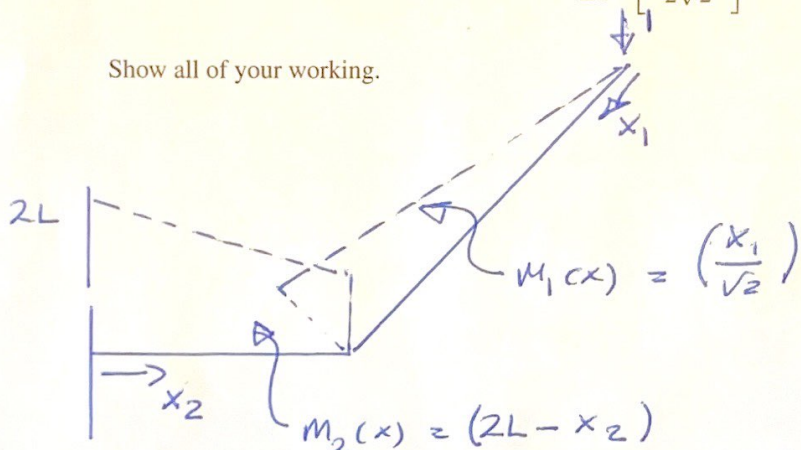 1
Show all of your working.
x₁
2L
M₁(x) = (x₁/√2)
x₂
M₂(x) = (2L - x₂)